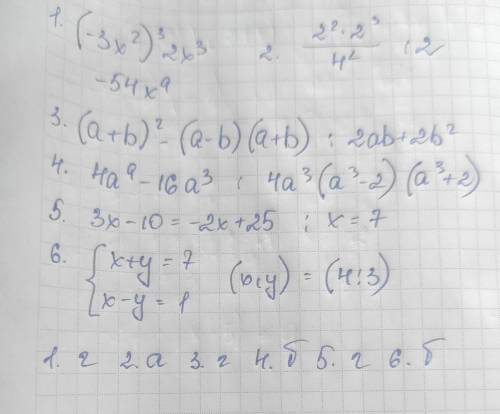 1. (-3x²)³ 2x³    2. 2²·2³/4² ; 2
-54x⁹
3. (a+b)² - (a-b)(a+b) ; 2ab+2b²
4. 4a⁹ - 16a³ ; 4a³(a³-2)(a³+2)
5. 3x-10 = -2x+25 ; x = 7
6. { x+y = 7    (x;y) = (4;3)
x-y = 1
1. г 2. а 3. г 4. б 5. г 6. б